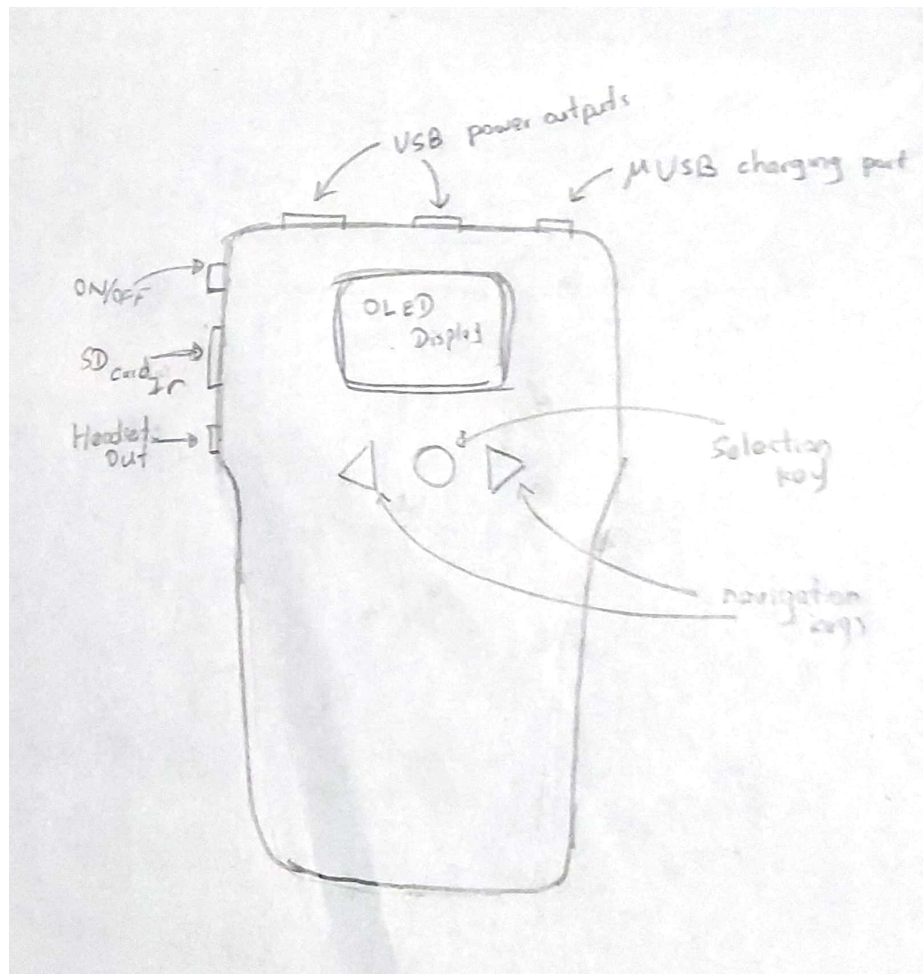 USB power outputs
μUSB charging port
ON/OFF
SD Card In
Headset
Out
OLED
Display
Selection
key
navigation
keys